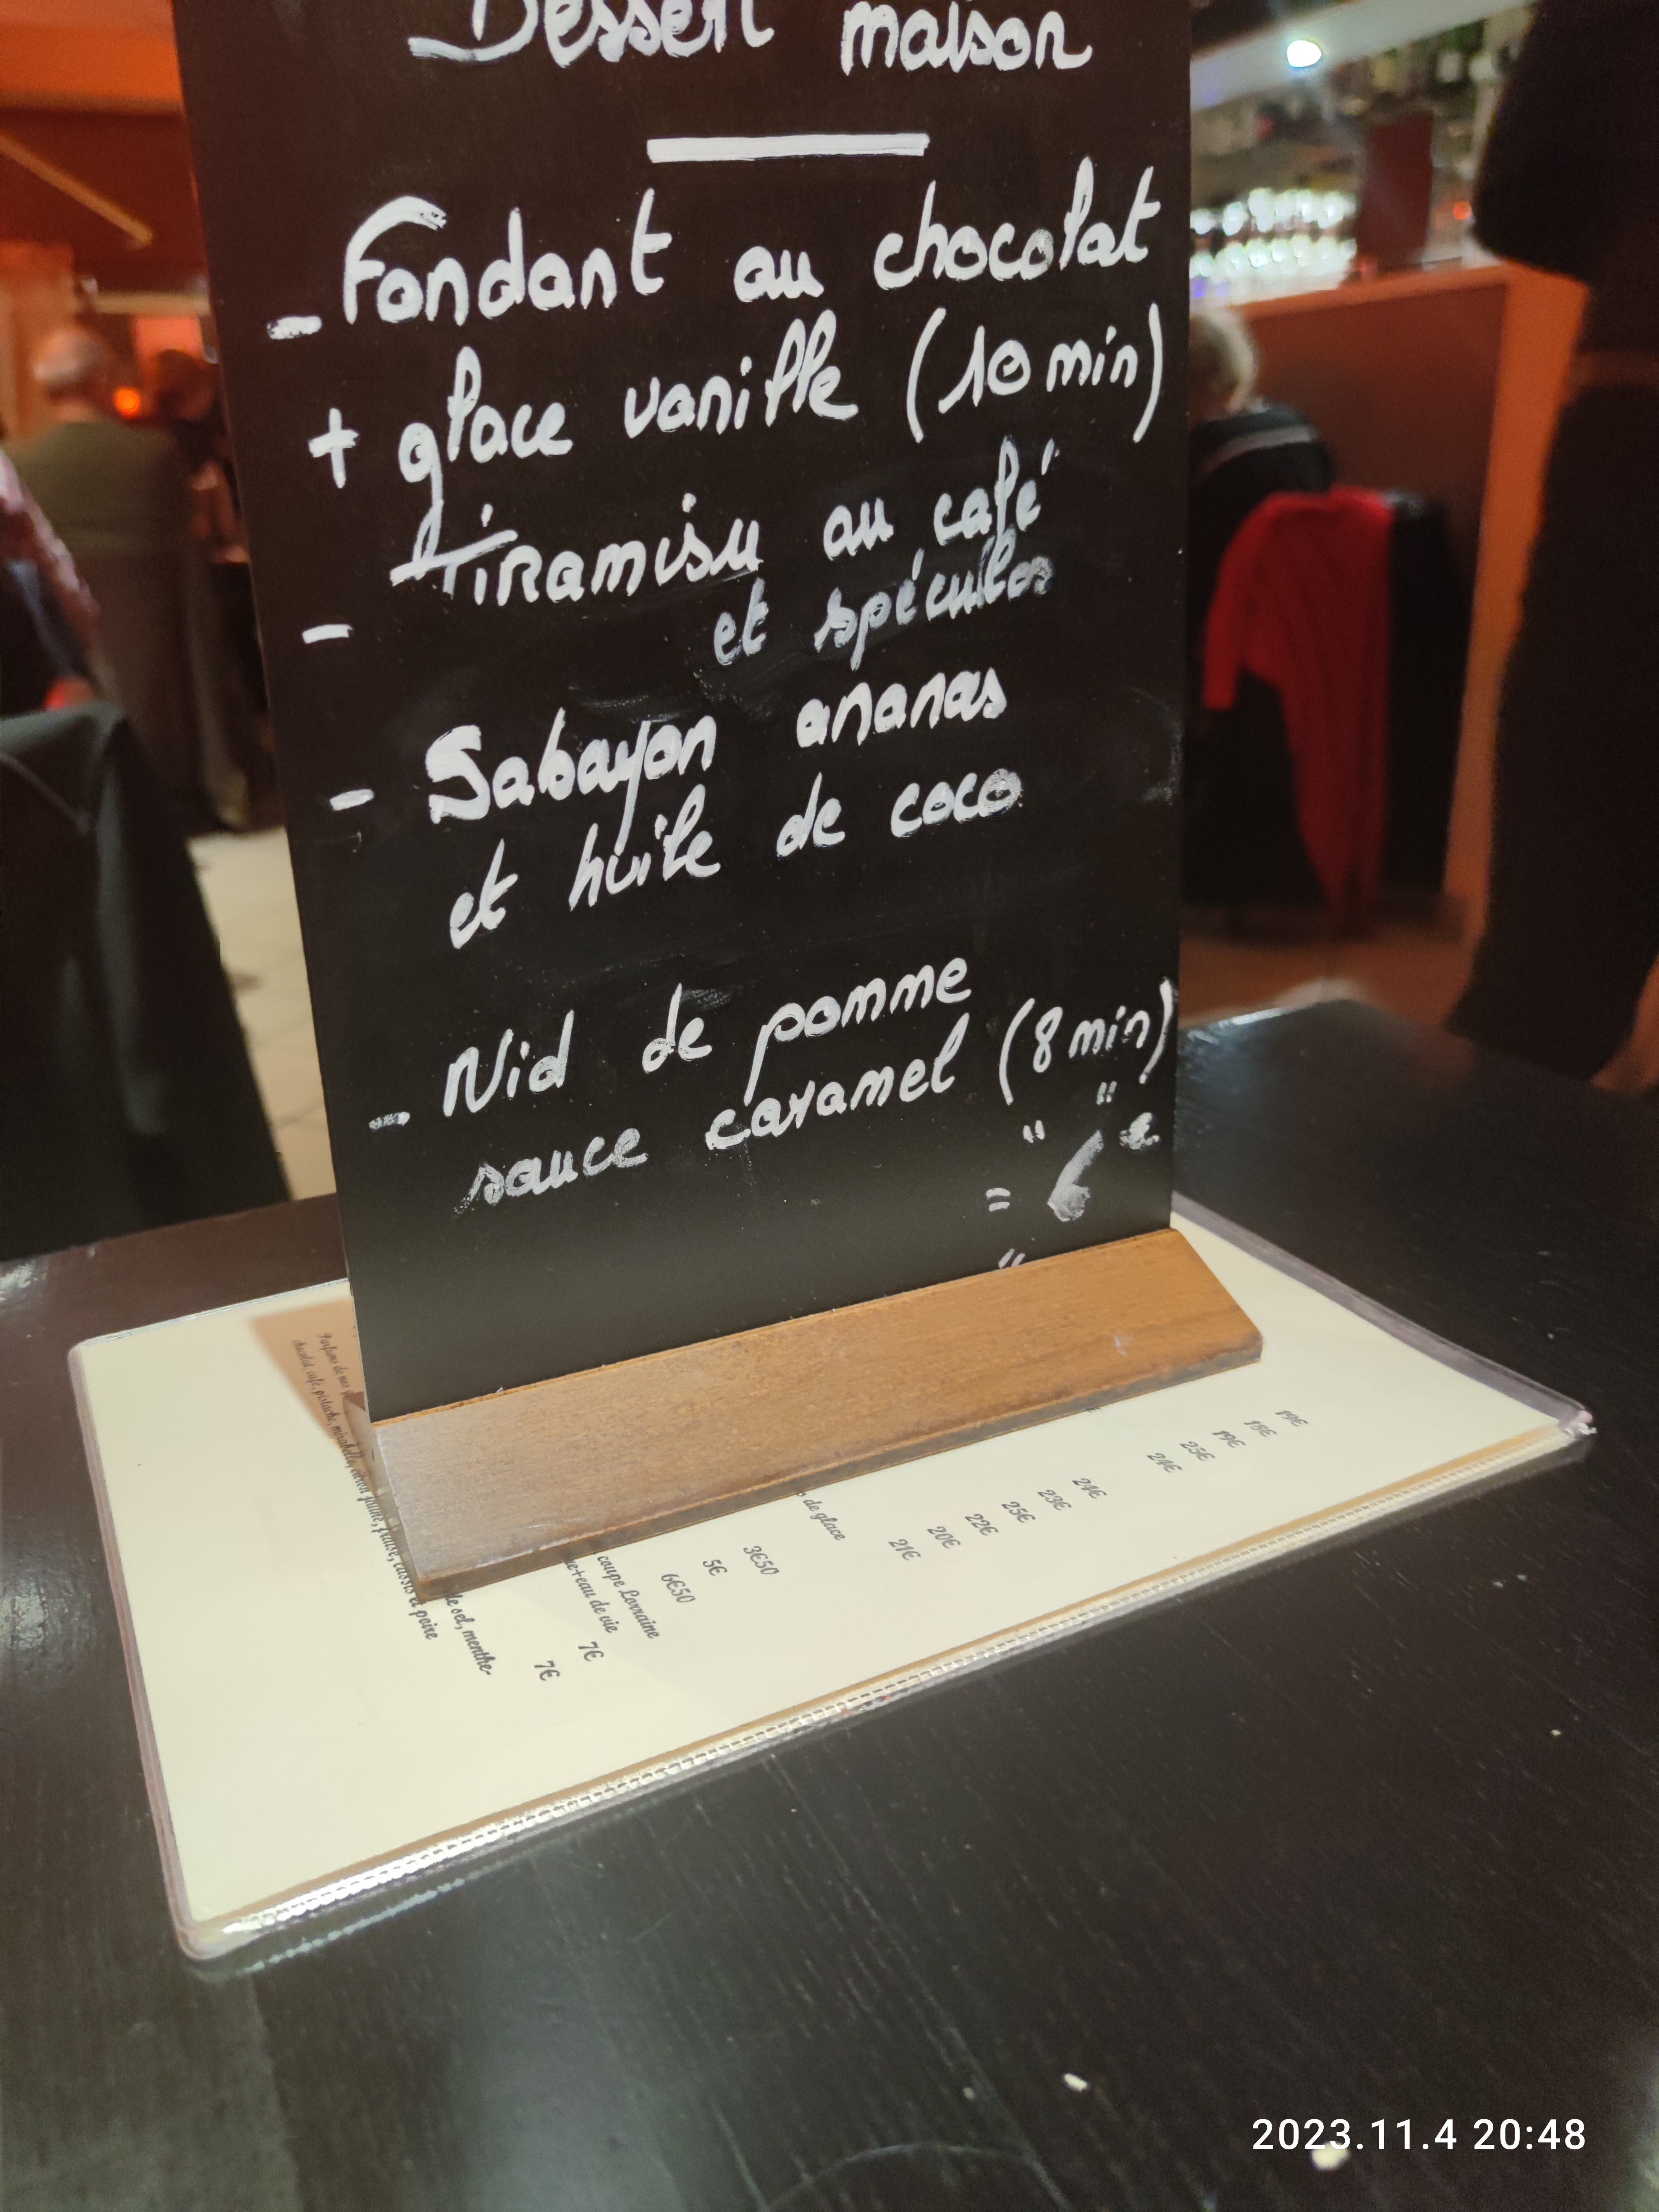 Dessert maison
- Fondant au chocolat
+ glace vanille (10 min)
- Tiramisu au café
et spéculos
- Sabayon ananas
et huile de coco
- Nid de pomme
sauce caramel (8 min)
" "
= 6 €
"
chocolat, café, pistache, mirabelle, citron jaune, fraise, cassis et poire
de sel, menthe-
7€
7€
coupe Lorraine
eau de vie
6€50
5€
3€50
de glace
21€
20€
22€
25€
23€
24€
24€
25€
19€
18€
19€
2023.11.4 20:48